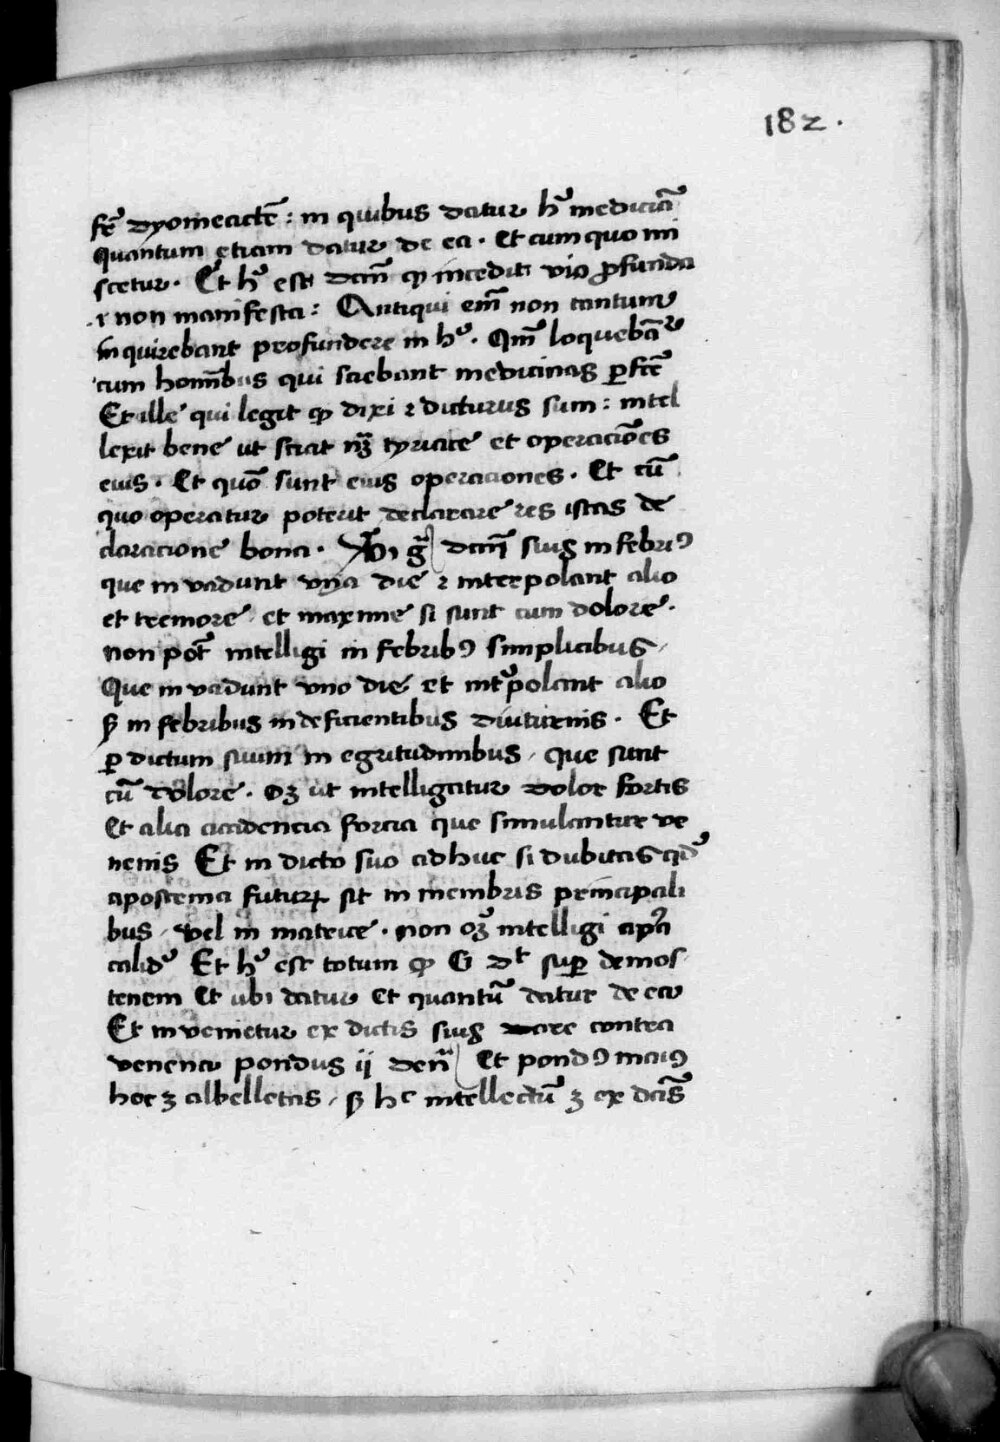 182.
fẽ dyomeactẽ: in quibus datur hͦ mediciã
quantum etiam datur de ea. Et cum quo mi
scetur. Et hͦ est dcm̃ ꝙ incedit via ꝓfunda
⁊ non manifesta: Antiqui em̃ non tantum
inquirebant profundere in hͦ. Qm̃ loquebãr
cum homĩbus qui sciebant medicinas ꝑfcẽ
Et ille qui legit ꝙ dixi ⁊ dicturus sum: intel
lexit bene ut sciat tyriace et operaciões
eius. Et quõ sunt eius operaciones. Et cũ
quo operatur poterit declarare res istas de
claracione bona. dcm̃ suis in febriꝯ
que in vadunt vna die ⁊ interpolant alio
et tremore et maxime si sunt cum dolore.
non pot̃ intelligi in febribꝯ simplicibus
Que in vadunt vno die et int̾polant alio
ꝭ in febribus in deficientibus diuturnis. Et
ꝑ dictum suum in egritudinibus, que sunt
cũ dolore. oꝫ ut intelligatur dolor fortis
Et alia accidencia forcia que simulantur ve
nenis Et in dicto suo adhuc si dubitas qd̾
apostema futuꝝ sit in membris principali
bus, vel in matrice. non oꝫ intelligi apᵒa
calidͦ Et hͦ est totum ꝙ G dᵗ suꝑ demos
tenem Et ubi datur et quantũ datur de ea
Et in venietur ex dictis suis dare contra
venena pondus ij deñ Et pondꝯ maiꝯ
hoc ꝫ albelletas, ꝭ hᶜ intellectũ ꝫ ex dcĩs